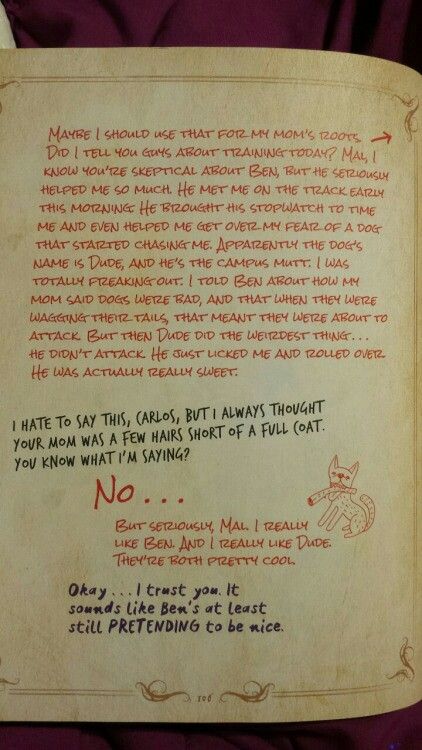 MAYBE I SHOULD USE THAT FOR MY MOM'S ROOTS.
DID I TELL YOU GUYS ABOUT TRAINING TODAY? MAL, I
KNOW YOU'RE SKEPTICAL ABOUT BEN, BUT HE SERIOUSLY
HELPED ME SO MUCH. HE MET ME ON THE TRACK EARLY
THIS MORNING. HE BROUGHT HIS STOPWATCH TO TIME
ME AND EVEN HELPED ME GET OVER MY FEAR OF A DOG
THAT STARTED CHASING ME. APPARENTLY THE DOG'S
NAME IS DUDE, AND HE'S THE CAMPUS MUTT. I WAS
TOTALLY FREAKING OUT. I TOLD BEN ABOUT HOW MY
MOM SAID DOGS WERE BAD, AND THAT WHEN THEY WERE
WAGGING THEIR TAILS, THAT MEANT THEY WERE ABOUT TO
ATTACK. BUT THEN DUDE DID THE WEIRDEST THING...
HE DIDN'T ATTACK. HE JUST LICKED ME AND ROLLED OVER.
HE WAS ACTUALLY REALLY SWEET.
I HATE TO SAY THIS, CARLOS, BUT I ALWAYS THOUGHT
YOUR MOM WAS A FEW HAIRS SHORT OF A FULL COAT.
YOU KNOW WHAT I'M SAYING?
NO...
BUT SERIOUSLY, MAL. I REALLY
LIKE BEN. AND I REALLY LIKE DUDE.
THEY'RE BOTH PRETTY COOL.
Okay...I trust you. It
sounds like Ben's at least
still PRETENDING to be nice.
106